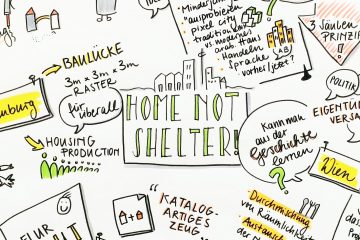 Minderjäh
ausprobieren
Pixel city
traditional
vs moderner
arab. Haus
Handeln
Sprache
vorher/jetzt?
LAB
3 SÄULEN
PRINZIP
POLITIK
EIGENTUM
VERSA
BAULÜCKE
3m x 3m x 3m
RASTER
für überall
HOUSING
PRODUCTION
HOME NOT
SHELTER!
Kann man
aus der
Geschichte
lernen
?
Wien
"KATALOG-
ARTIGES
ZEUG"
Durchmischung
von Räumlichk
der
Austausch
FLUR